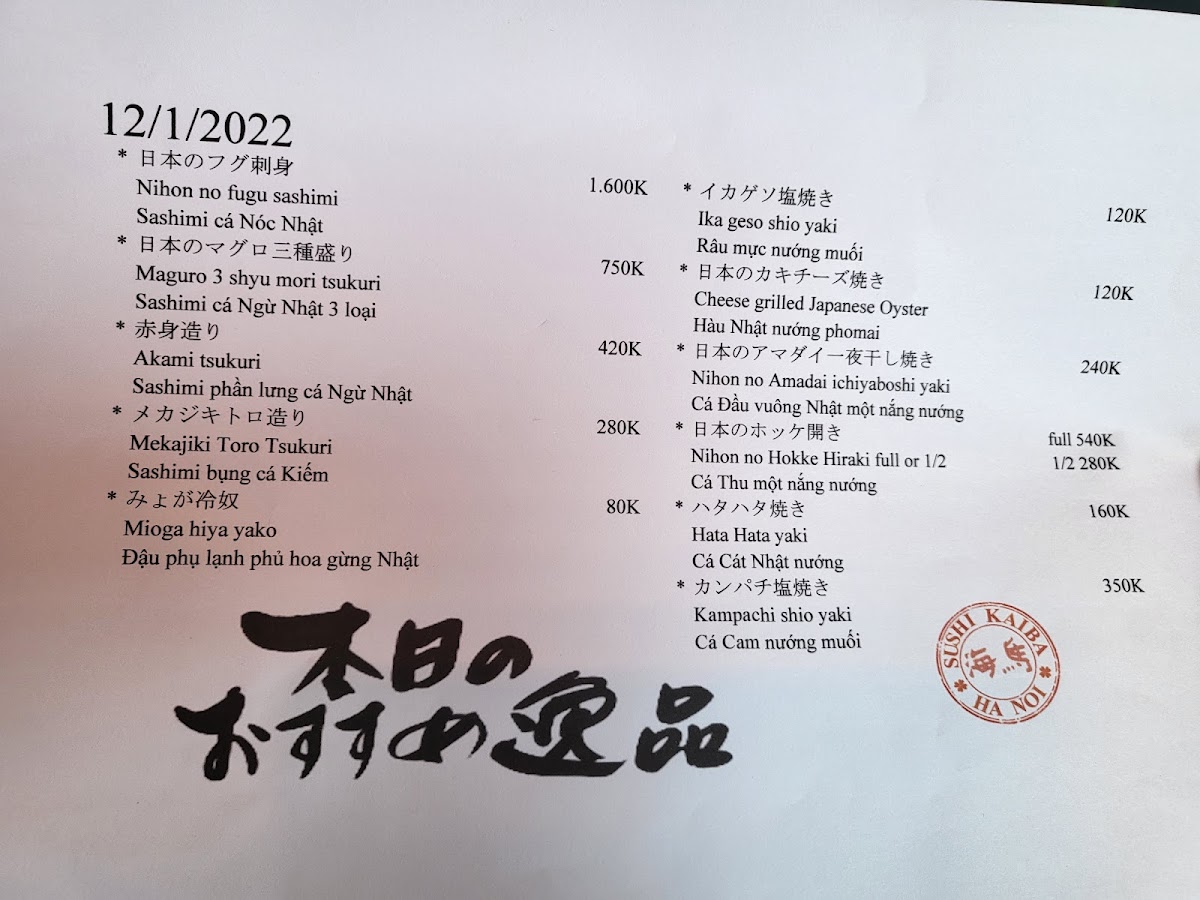 12/1/2022
* 日本のフグ刺身
Nihon no fugu sashimi 1.600K
Sashimi cá Nóc Nhật
* 日本のマグロ三種盛り
Maguro 3 shyu mori tsukuri 750K
Sashimi cá Ngừ Nhật 3 loại
* 赤身造り
Akami tsukuri 420K
Sashimi phần lưng cá Ngừ Nhật
* メカジキトロ造り
Mekajiki Toro Tsukuri 280K
Sashimi bụng cá Kiếm
* みょが冷奴
Mioga hiya yako 80K
Đậu phụ lạnh phủ hoa gừng Nhật
* イカゲソ塩焼き
Ika geso shio yaki 120K
Râu mực nướng muối
* 日本のカキチーズ焼き
Cheese grilled Japanese Oyster 120K
Hàu Nhật nướng phomai
* 日本のアマダイ一夜干し焼き
Nihon no Amadai ichiyaboshi yaki 240K
Cá Đầu vuông Nhật một nắng nướng
* 日本のホッケ開き full 540K
Nihon no Hokke Hiraki full or 1/2 1/2 280K
Cá Thu một nắng nướng
* ハタハタ焼き 160K
Hata Hata yaki
Cá Cát Nhật nướng
* カンパチ塩焼き 350K
Kampachi shio yaki
Cá Cam nướng muối
本日の
おすすめ逸品
SUSHI KAIBA
海馬
HA NOI